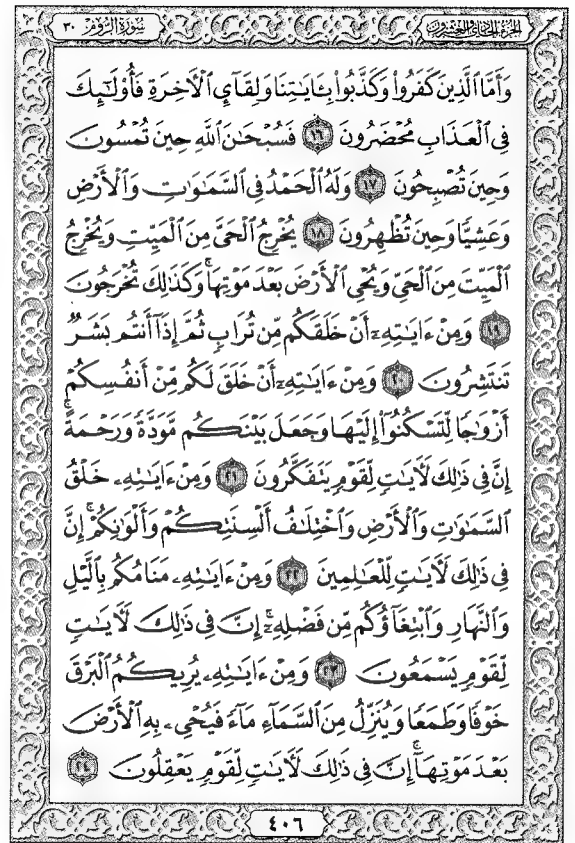 الجزء الحادي والعشرون
سورة الروم ٣٠
وَأَمَّا ٱلَّذِينَ كَفَرُوا۟ وَكَذَّبُوا۟ بِـَٔايَـٰتِنَا وَلِقَآئِ ٱلْـَٔاخِرَةِ فَأُو۟لَـٰٓئِكَ
فِى ٱلْعَذَابِ مُحْضَرُونَ ١٦ فَسُبْحَـٰنَ ٱللَّهِ حِينَ تُمْسُونَ
وَحِينَ تُصْبِحُونَ ١٧ وَلَهُ ٱلْحَمْدُ فِى ٱلسَّمَـٰوَٰتِ وَٱلْأَرْضِ
وَعَشِيًّا وَحِينَ تُظْهِرُونَ ١٨ يُخْرِجُ ٱلْحَىَّ مِنَ ٱلْمَيِّتِ وَيُخْرِجُ
ٱلْمَيِّتَ مِنَ ٱلْحَىِّ وَيُحْىِ ٱلْأَرْضَ بَعْدَ مَوْتِهَا ۚ وَكَذَٰلِكَ تُخْرَجُونَ
١٩ وَمِنْ ءَايَـٰتِهِۦٓ أَنْ خَلَقَكُم مِّن تُرَابٍ ثُمَّ إِذَآ أَنتُم بَشَرٌ
تَنتَشِرُونَ ٢٠ وَمِنْ ءَايَـٰتِهِۦٓ أَنْ خَلَقَ لَكُم مِّنْ أَنفُسِكُمْ
أَزْوَٰجًا لِّتَسْكُنُوٓا۟ إِلَيْهَا وَجَعَلَ بَيْنَكُم مَّوَدَّةً وَرَحْمَةً ۚ
إِنَّ فِى ذَٰلِكَ لَـَٔايَـٰتٍ لِّقَوْمٍ يَتَفَكَّرُونَ ٢١ وَمِنْ ءَايَـٰتِهِۦ خَلْقُ
ٱلسَّمَـٰوَٰتِ وَٱلْأَرْضِ وَٱخْتِلَـٰفُ أَلْسِنَتِكُمْ وَأَلْوَٰنِكُمْ ۚ إِنَّ
فِى ذَٰلِكَ لَـَٔايَـٰتٍ لِّلْعَـٰلِمِينَ ٢٢ وَمِنْ ءَايَـٰتِهِۦ مَنَامُكُم بِٱلَّيْلِ
وَٱلنَّهَارِ وَٱبْتِغَآؤُكُم مِّن فَضْلِهِۦٓ ۚ إِنَّ فِى ذَٰلِكَ لَـَٔايَـٰتٍ
لِّقَوْمٍ يَسْمَعُونَ ٢٣ وَمِنْ ءَايَـٰتِهِۦ يُرِيكُمُ ٱلْبَرْقَ
خَوْفًا وَطَمَعًا وَيُنَزِّلُ مِنَ ٱلسَّمَآءِ مَآءً فَيُحْىِۦ بِهِ ٱلْأَرْضَ
بَعْدَ مَوْتِهَآ ۚ إِنَّ فِى ذَٰلِكَ لَـَٔايَـٰتٍ لِّقَوْمٍ يَعْقِلُونَ ٢٤
٤٠٦